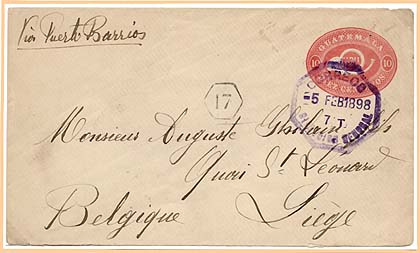 Via Puerto Barrios
GUATEMALA
10 10
DIEZ CENTAVOS
CORREOS
5 FEB 1898
7 T.
17
Monsieur Auguste Ghislain
Quai St Léonard
Belgique Liège